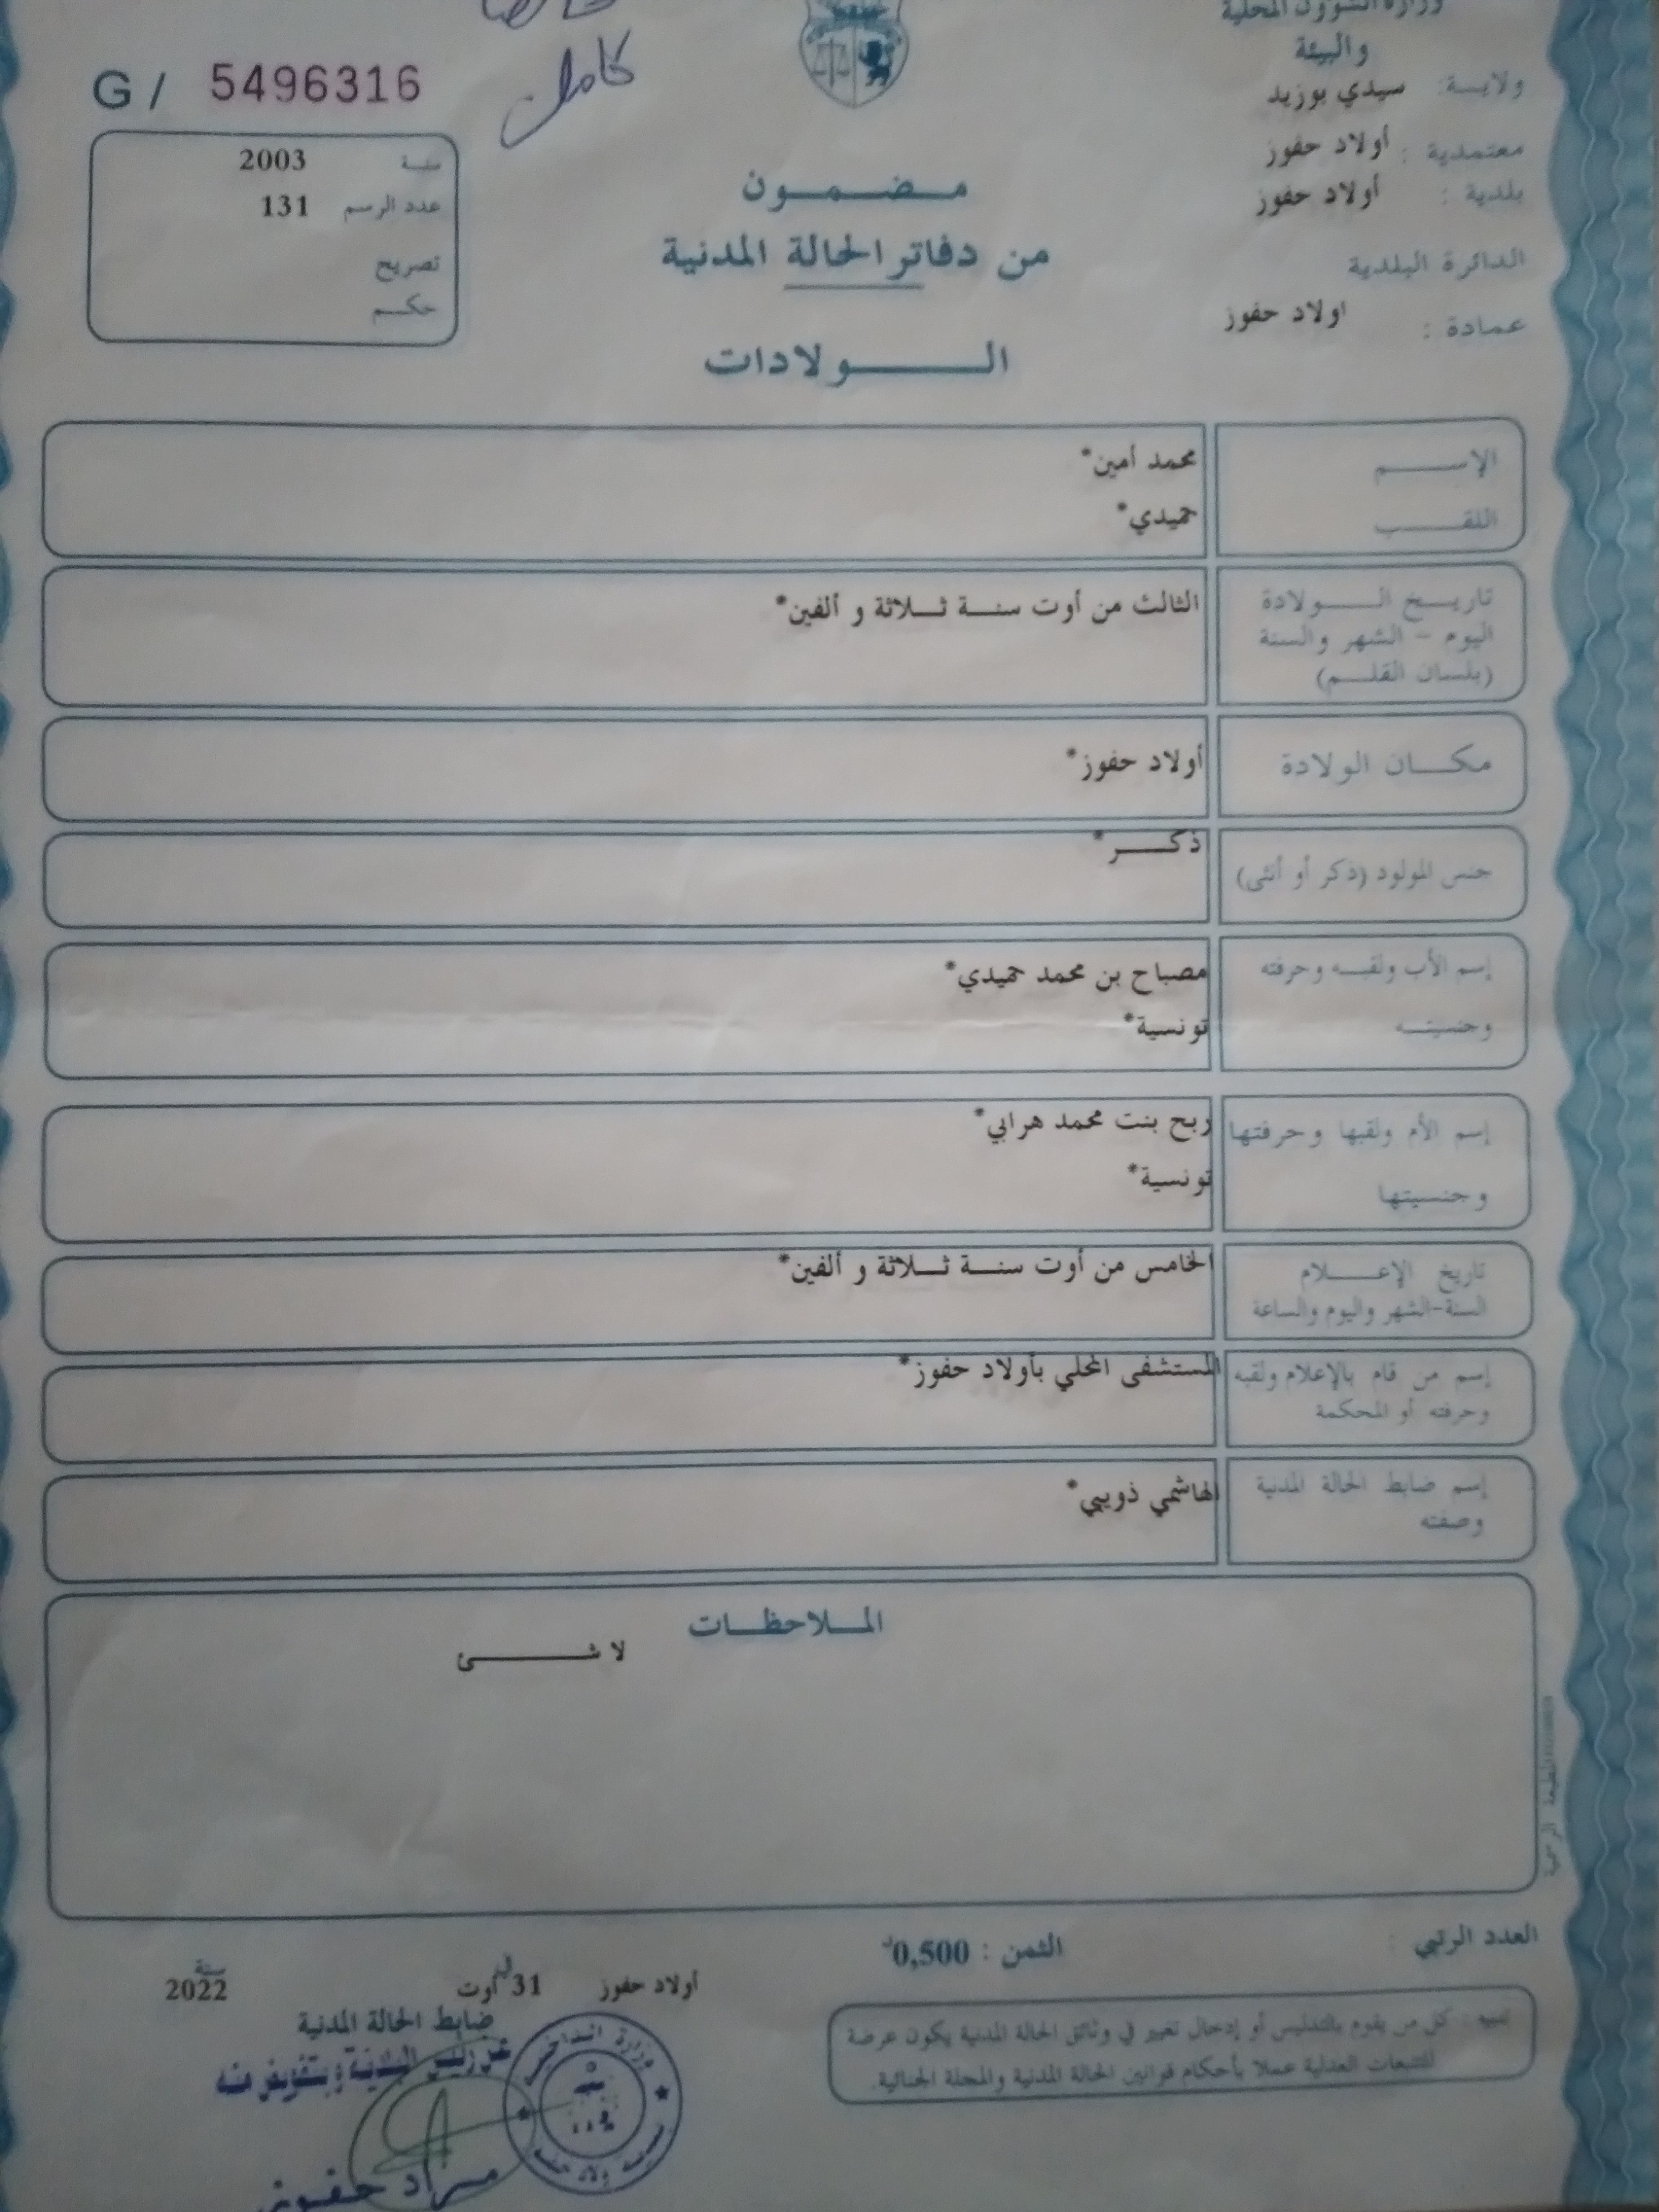 وزارة الشؤون المحلية
والبيئة
ولايـــة: سيدي بوزيد
معتمدية : أولاد حفوز
بلدية : أولاد حفوز
الدائرة البلدية
عمادة : اولاد حفوز
كامل
G / 5496316
سنة 2003
عدد الرسم 131
تصريح
حكم
مضمون
من دفاتر الحالة المدنية
الولادات
الإسم محمد أمين*
اللقب حميدي*
تاريخ الولادة الثالث من أوت سنة ثلاثة و ألفين*
اليوم - الشهر والسنة
(بلسان القلم)
مكان الولادة أولاد حفوز*
جنس المولود (ذكر أو أنثى) ذكر*
إسم الأب ولقبه وحرفته مصباح بن محمد حميدي*
وجنسيته تونسية*
إسم الأم ولقبها وحرفتها ربح بنت محمد هرابي*
وجنسيتها تونسية*
تاريخ الإعلام الخامس من أوت سنة ثلاثة و ألفين*
السنة-الشهر واليوم والساعة
إسم من قام بالإعلام ولقبه المستشفى المحلي بأولاد حفوز*
وحرفته أو المحكمة
إسم ضابط الحالة المدنية الهاشمي ذويبي*
وصفته
الملاحظات
لا شئ
المطبعة الرسمية
العدد الرتبي :
الثمن : 0,500د
أولاد حفوز في 31 أوت سنة 2022
ضابط الحالة المدنية
عن رئيس البلدية وبتفويض منه
مراد حفوزي
وزارة الداخلية
تنبيه : كل من يقوم بالتدليس أو إدخال تغيير في وثائق الحالة المدنية يكون عرضة
للتتبعات العدلية عملا بأحكام قوانين الحالة المدنية والمجلة الجنائية.